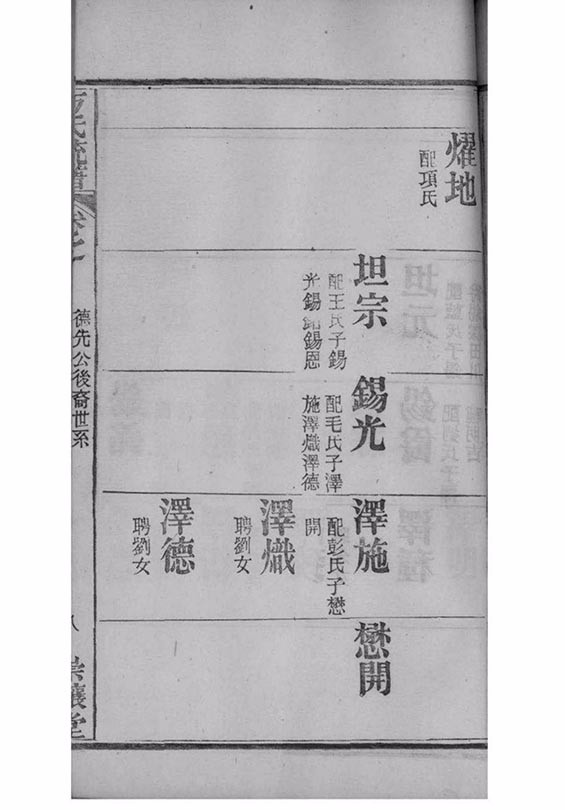 燿地
配項氏
坦宗
配王氏子錫
光錫錩錫恩
錫光
配毛氏子澤
施澤熾澤德
澤施
配彭氏子懋
開
懋開
澤熾
聘劉女
澤德
聘劉女
氏流譜
卷之
德先公後裔世系
八
崇讓堂